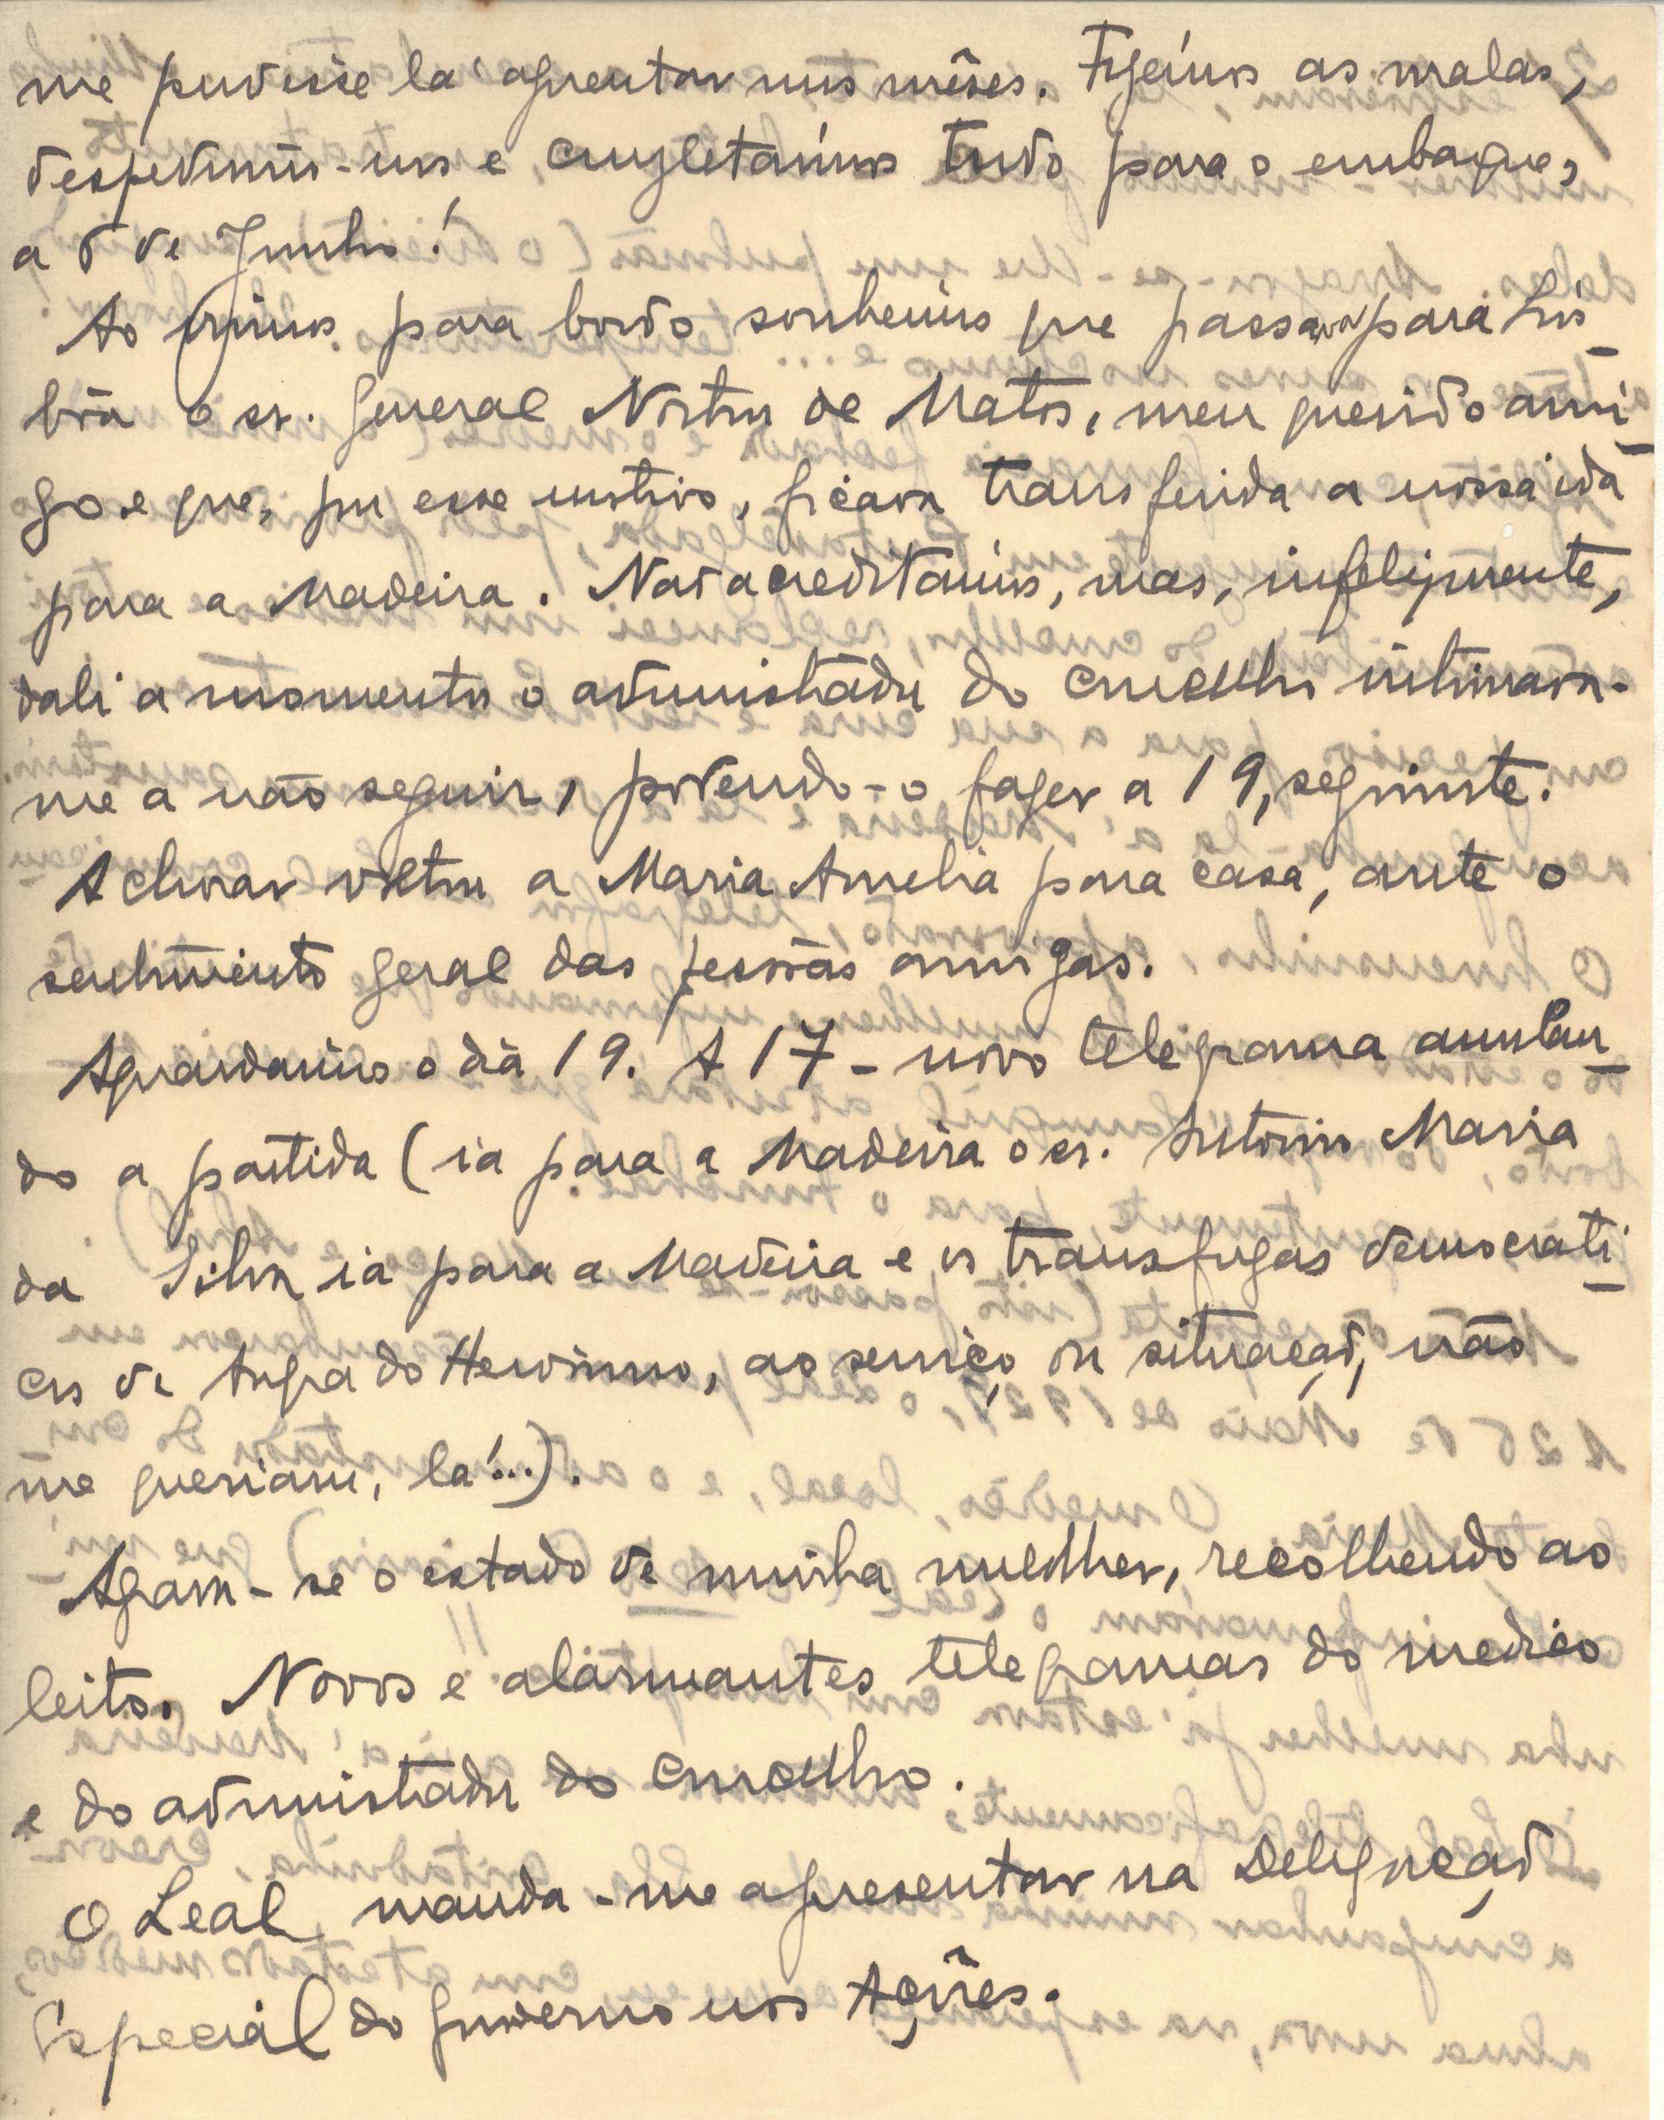 me pudesse lá aguentar uns mêses. Fizémos as malas,
despedimos-nos e completámos tudo para o embarque,
a 6 de Junho!
Ao irmos para bordo soubemos que passava para Lis-
bôa o sr. General Norton de Matos, meu querido ami-
go e que, por esse motivo, ficava transferida a nossa ida
para a Madeira. Não acreditámos, mas, infelizmente,
dali a momentos o administrador do concelho intimava-
me a não seguir, podendo-o fazer a 19, seguinte.
A chorar voltou a Maria Amelia para casa, ante o
sentimento geral das pessoas amigas.
Aguardámos o dia 19. A 17 - novo telegrama anulan-
do a partida (ia para a Madeira o sr. Antonio Maria
da Silva ia para a Madeira e os transfugas democrati-
cos de Angra do Heroismo, ao serviço da situação, não
me queriam, lá!...).
Agrava-se o estado de minha mulher, recolhendo ao
leito. Novos e alarmantes telegramas do medico
e do administrador do concelho.
O Leal manda-me apresentar na Delegação
Especial do Governo nos Açôres.